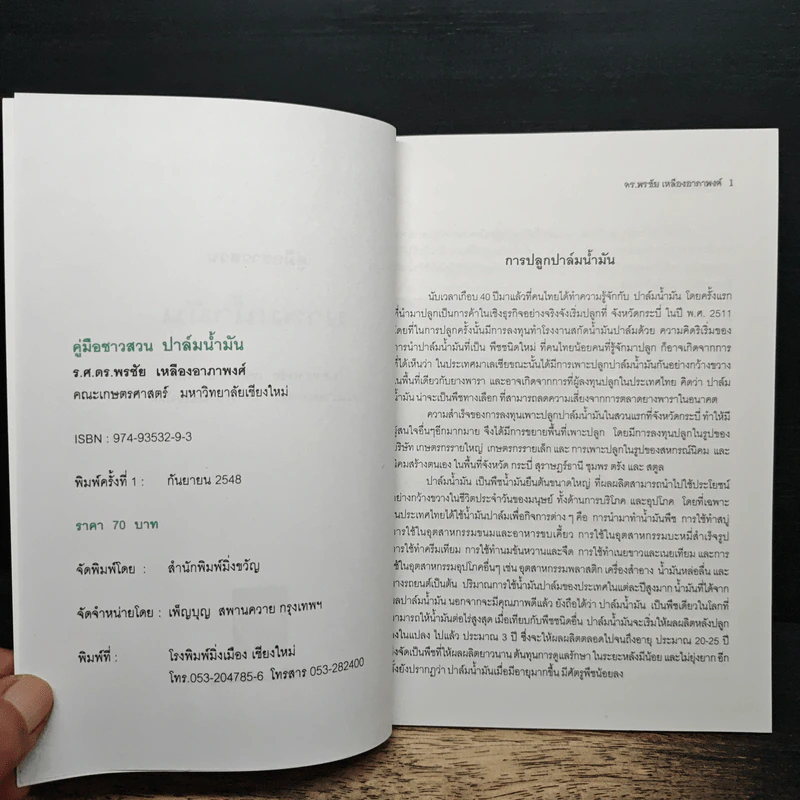 คู่มือชาวสวน ปาล์มน้ำมัน
ร.ศ.ดร.พรชัย เหลืองอาภาพงศ์
คณะเกษตรศาสตร์ มหาวิทยาลัยเชียงใหม่
ISBN : 974-93532-9-3
พิมพ์ครั้งที่ 1 : กันยายน 2548
ราคา 70 บาท
จัดพิมพ์โดย : สำนักพิมพ์มิ่งขวัญ
จัดจำหน่ายโดย : เพ็ญบุญ สพานควาย กรุงเทพฯ
พิมพ์ที่ : โรงพิมพ์มิ่งเมือง เชียงใหม่
โทร.053-204785-6 โทรสาร 053-282400
ดร.พรชัย เหลืองอาภาพงศ์ 1
การปลูกปาล์มน้ำมัน
นับเวลาเกือบ 40 ปีมาแล้วที่คนไทยได้ทำความรู้จักกับ ปาล์มน้ำมัน โดยครั้งแรก
ที่นำมาปลูกเป็นการค้าในเชิงธุรกิจอย่างจริงจังเริ่มปลูกที่ จังหวัดกระบี่ ในปี พ.ศ. 2511
โดยที่ในการปลูกครั้งนั้นมีการลงทุนทำโรงงานสกัดน้ำมันปาล์มด้วย ความคิดริเริ่มของ
การนำปาล์มน้ำมันที่เป็น พืชชนิดใหม่ ที่คนไทยน้อยคนที่รู้จักมาปลูก ก็อาจเกิดจากการ
ที่ได้เห็นว่า ในประเทศมาเลเซียขณะนั้นได้มีการเพาะปลูกปาล์มน้ำมันกันอย่างกว้างขวาง
ในพื้นที่เดียวกับยางพารา และอาจเกิดจากการที่ผู้ลงทุนปลูกในประเทศไทย คิดว่า ปาล์ม
น้ำมัน น่าจะเป็นพืชทางเลือก ที่สามารถลดความเสี่ยงจากการตลาดยางพาราในอนาคต
ความสำเร็จของการลงทุนเพาะปลูกปาล์มน้ำมันในสวนแรกที่จังหวัดกระบี่ ทำให้มี
ผู้สนใจอื่นๆอีกมากมาย จึงได้มีการขยายพื้นที่เพาะปลูก โดยมีการลงทุนปลูกในรูปของ
บริษัท เกษตรกรรายใหญ่ เกษตรกรรายเล็ก และ การเพาะปลูกในรูปของสหกรณ์นิคม และ
นิคมสร้างตนเอง ในพื้นที่จังหวัด กระบี่ สุราษฎร์ธานี ชุมพร ตรัง และ สตูล
ปาล์มน้ำมัน เป็นพืชน้ำมันยืนต้นขนาดใหญ่ ที่ผลผลิตสามารถนำไปใช้ประโยชน์
อย่างกว้างขวางในชีวิตประจำวันของมนุษย์ ทั้งด้านการบริโภค และอุปโภค โดยที่เฉพาะ
ในประเทศไทยได้ใช้น้ำมันปาล์มเพื่อกิจการต่าง ๆ คือ การนำมาทำน้ำมันพืช การใช้ทำสบู่
การใช้ในอุตสาหกรรมขนมและอาหารขบเคี้ยว การใช้ในอุตสาหกรรมบะหมี่สำเร็จรูป
การใช้ทำครีมเทียม การใช้ทำนมข้นหวานและจืด การใช้ทำเนยขาวและเนยเทียม และการ
ใช้ในอุตสาหกรรมอุปโภคอื่นๆ เช่น อุตสาหกรรมพลาสติก เครื่องสำอาง น้ำมันหล่อลื่น และ
ยางรถยนต์เป็นต้น ปริมาณการใช้น้ำมันปาล์มของประเทศในแต่ละปีสูงมาก น้ำมันที่ได้จาก
ผลปาล์มน้ำมัน นอกจากจะมีคุณภาพดีแล้ว ยังถือได้ว่า ปาล์มน้ำมัน เป็นพืชเดียวในโลกที่
สามารถให้น้ำมันต่อไร่สูงสุด เมื่อเทียบกับพืชชนิดอื่น ปาล์มน้ำมันจะเริ่มให้ผลผลิตหลังปลูก
ลงในแปลง ไปแล้ว ประมาณ 3 ปี ซึ่งจะให้ผลผลิตตลอดไปจนถึงอายุ ประมาณ 20-25 ปี
จึงจัดเป็นพืชที่ให้ผลผลิตยาวนาน ต้นทุนการดูแลรักษา ในระยะหลังมีน้อย และไม่ยุ่งยาก อีก
ทั้งยังปรากฏว่า ปาล์มน้ำมันเมื่อมีอายุมากขึ้น มีศัตรูพืชน้อยลง